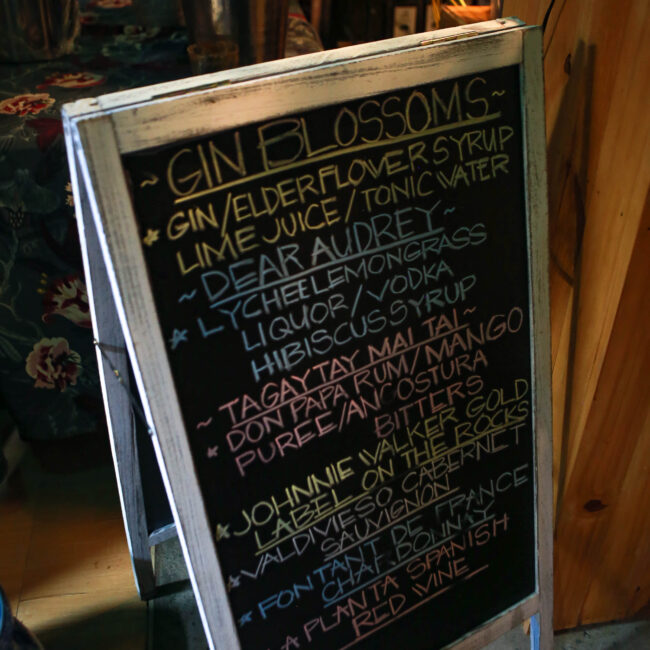 ~ GIN BLOSSOMS ~
* GIN/ELDERFLOWER SYRUP
LIME JUICE/TONIC WATER
~ DEAR AUDREY ~
* LYCHEE LEMONGRASS
LIQUOR/VODKA
HIBISCUS SYRUP
~ TAGAYTAY MAI TAI ~
* DON PAPA RUM/MANGO
PUREE/ANCOSTURA
BITTERS
* JOHNNIE WALKER GOLD
LABEL ON THE ROCKS
* VALDIVIESO CABERNET
SAUVIGNON
* FONTANT DE FRANCE
PLANTA SPANISH
RED WINE